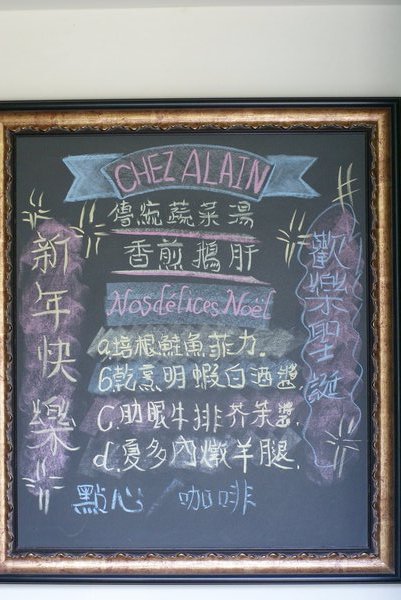 CHEZ ALAIN
傳統蔬菜湯
香煎鵝肝
Nos délices Noël
a.培根鮭魚菲力.
b.乾烹明蝦白酒醬.
C.肋眼牛排芥茉醬.
d.夏多內燉羊腿.
點心/咖啡
新年快樂
歡樂聖誕